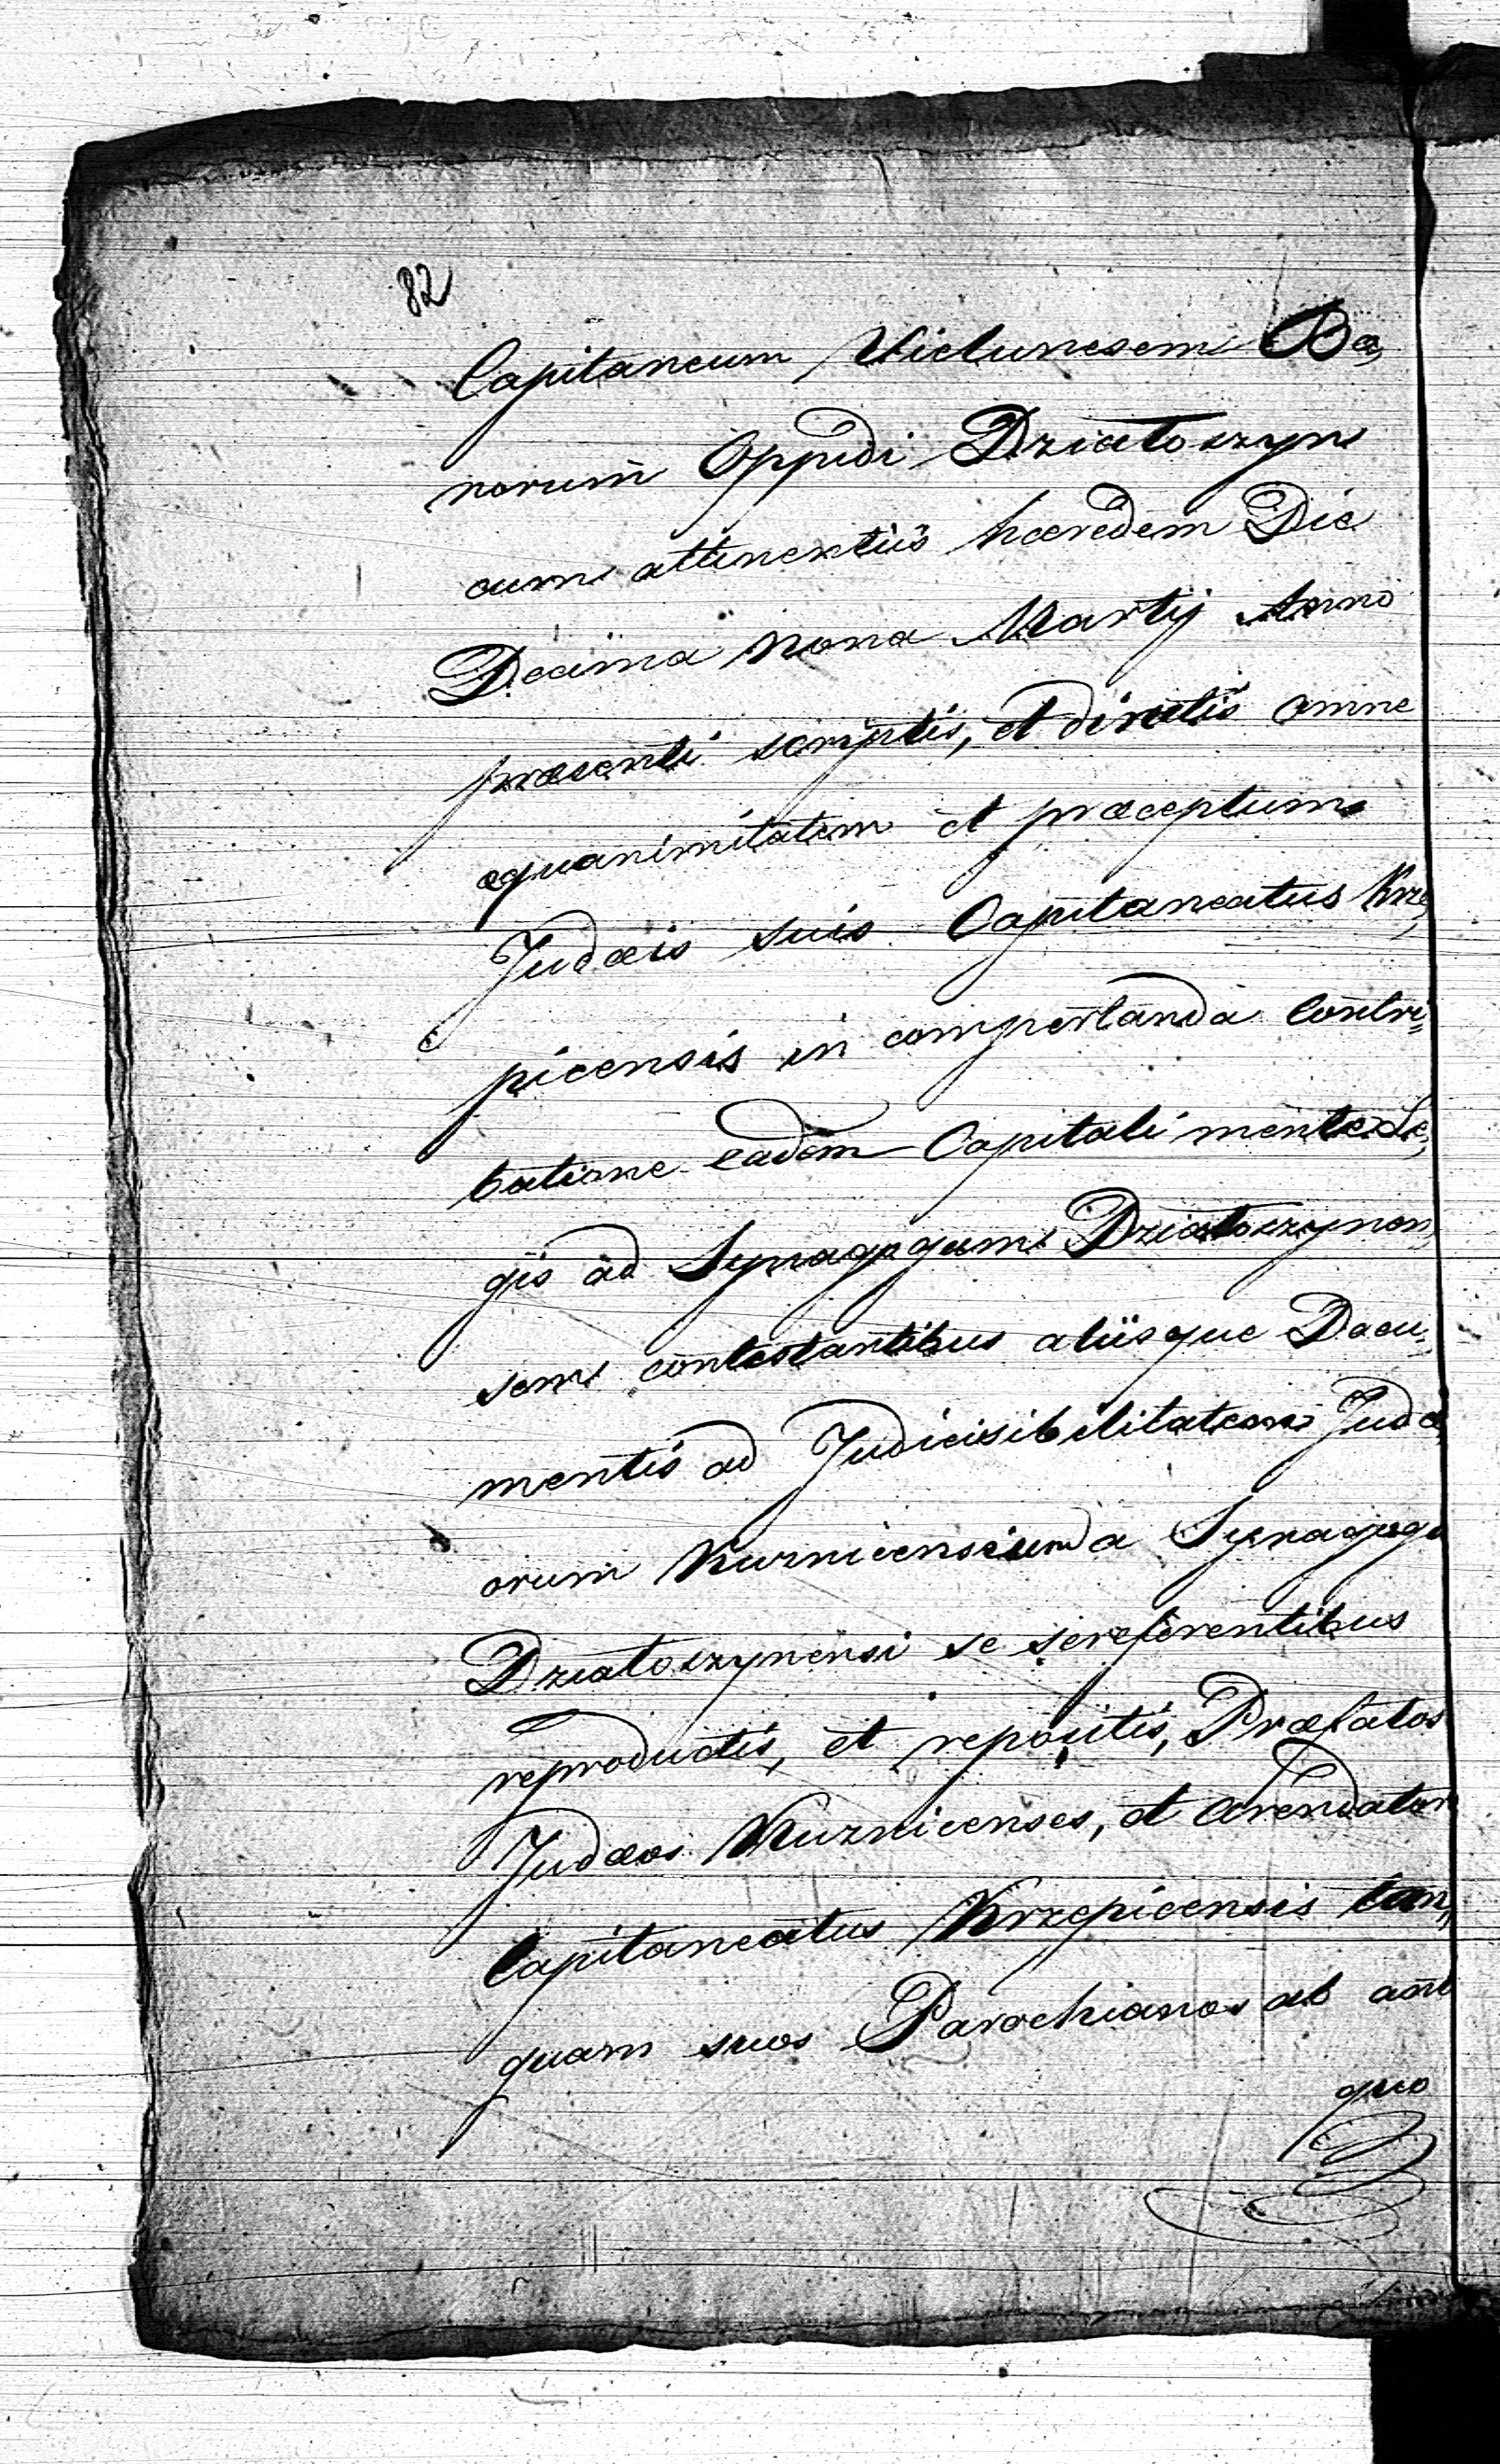 82
Capitaneum Vielunesem Bo,
norum Oppidi Działoszyn
cum attinentiis hæredem Die
Decima nona Martij Anno
præsenti scriptis, et directis omne
æquanimitatem et præceptum
Judæis suis Capitaneatus Krze,
picensis in comportanda Contri=
butione eadem Capitali mente Le,
gis ad Synagogam Działoszynen,
sem contestantibus aliisque Docu,
mentis ad Judicisibilitatem Judæ,
orum Kuznicensium a Synagoga
Działoszynensi se sereferentibus
reproductis, et repositis, Præfatos
Judæos Kuznicenses, et Arendator
Capitaneatus Krzepicensis tan,
quam suos Parochianos ab anti
quo